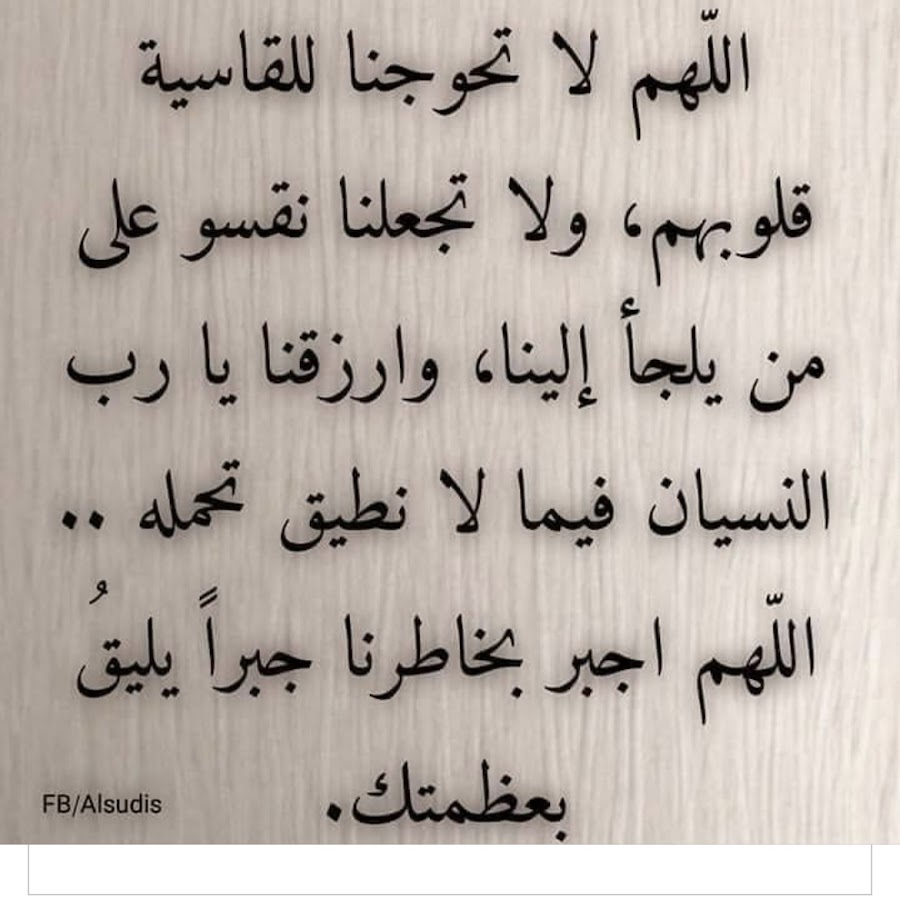 اللّهم لا تحوجنا للقاسية
قلوبهم، ولا تجعلنا نقسو على
من يلجأ إلينا، وارزقنا يا رب
النسيان فيما لا نطيق تحمله ..
اللّهم اجبر بخاطرنا جبراً يليقُ
بعظمتك.
FB/Alsudis